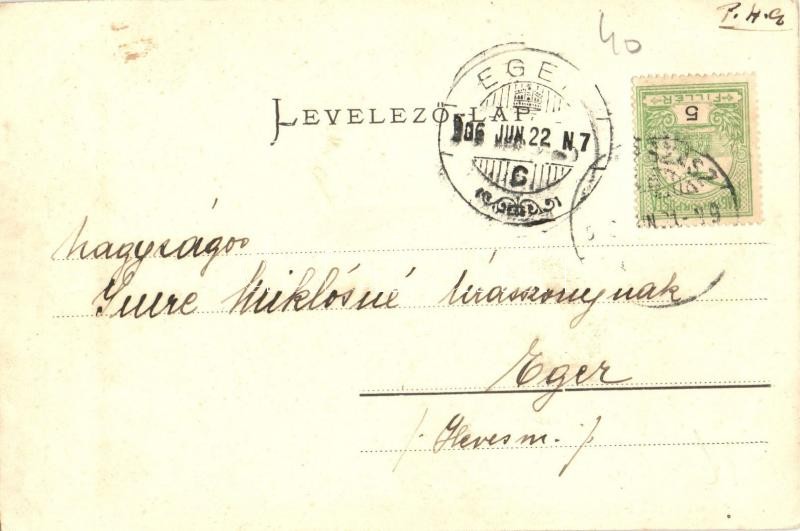 P. H. G.
40
EGE
LEVELEZŐ-LAP
906 JUN.22 N.7
C
FILLÉR
5
Nagyságos
Imre Miklósné úrasszonynak
Eger
/. Hevesm. /.